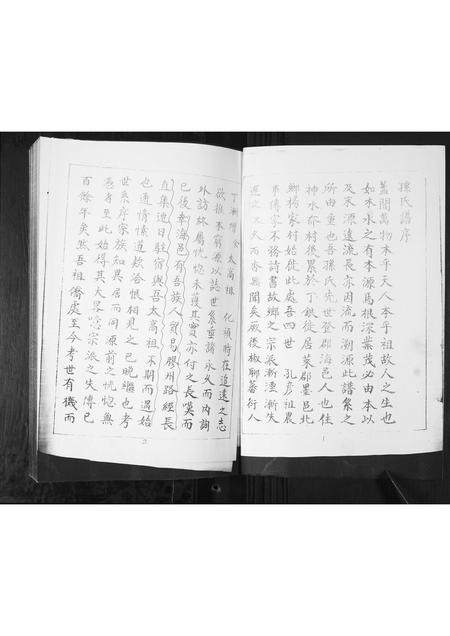 孫氏譜序
蓋聞萬物本乎天人本乎祖故人之生也
如木水之有本源焉根深葉茂必由本以
及末源遠流長亦因流而溯源此譜系之
所由重也吾孫氏先世登郡海邑人也住
神水郃村後累於丁銀徙居萊郡墨邑北
鄉楊家村始徙此處吾四世 孔彥祖農
事傳家不務詩書故鄉之宗派漸湮漸失
遷之又久而杳無聞矣厥後椒聊蕃衍人
1
丁漸增余太高祖 化禎時在追遠之志
欲推本窮源以誌世系垂諸永久而內詢
外訪終屬恍惚未獲其實亦付之長嘆而
已後幸海邑有吾族人貿易膠州路經長
直集連日駐宿與吾太高祖不期而遇始
也通情愫道款洽恨相見之已晚繼也考
世系序宗族知異居而同源前之恍惚無
憑者至此始得其大畧噫宗派之失傳已
百餘年矣然吾祖僑處至今考世有機而
2